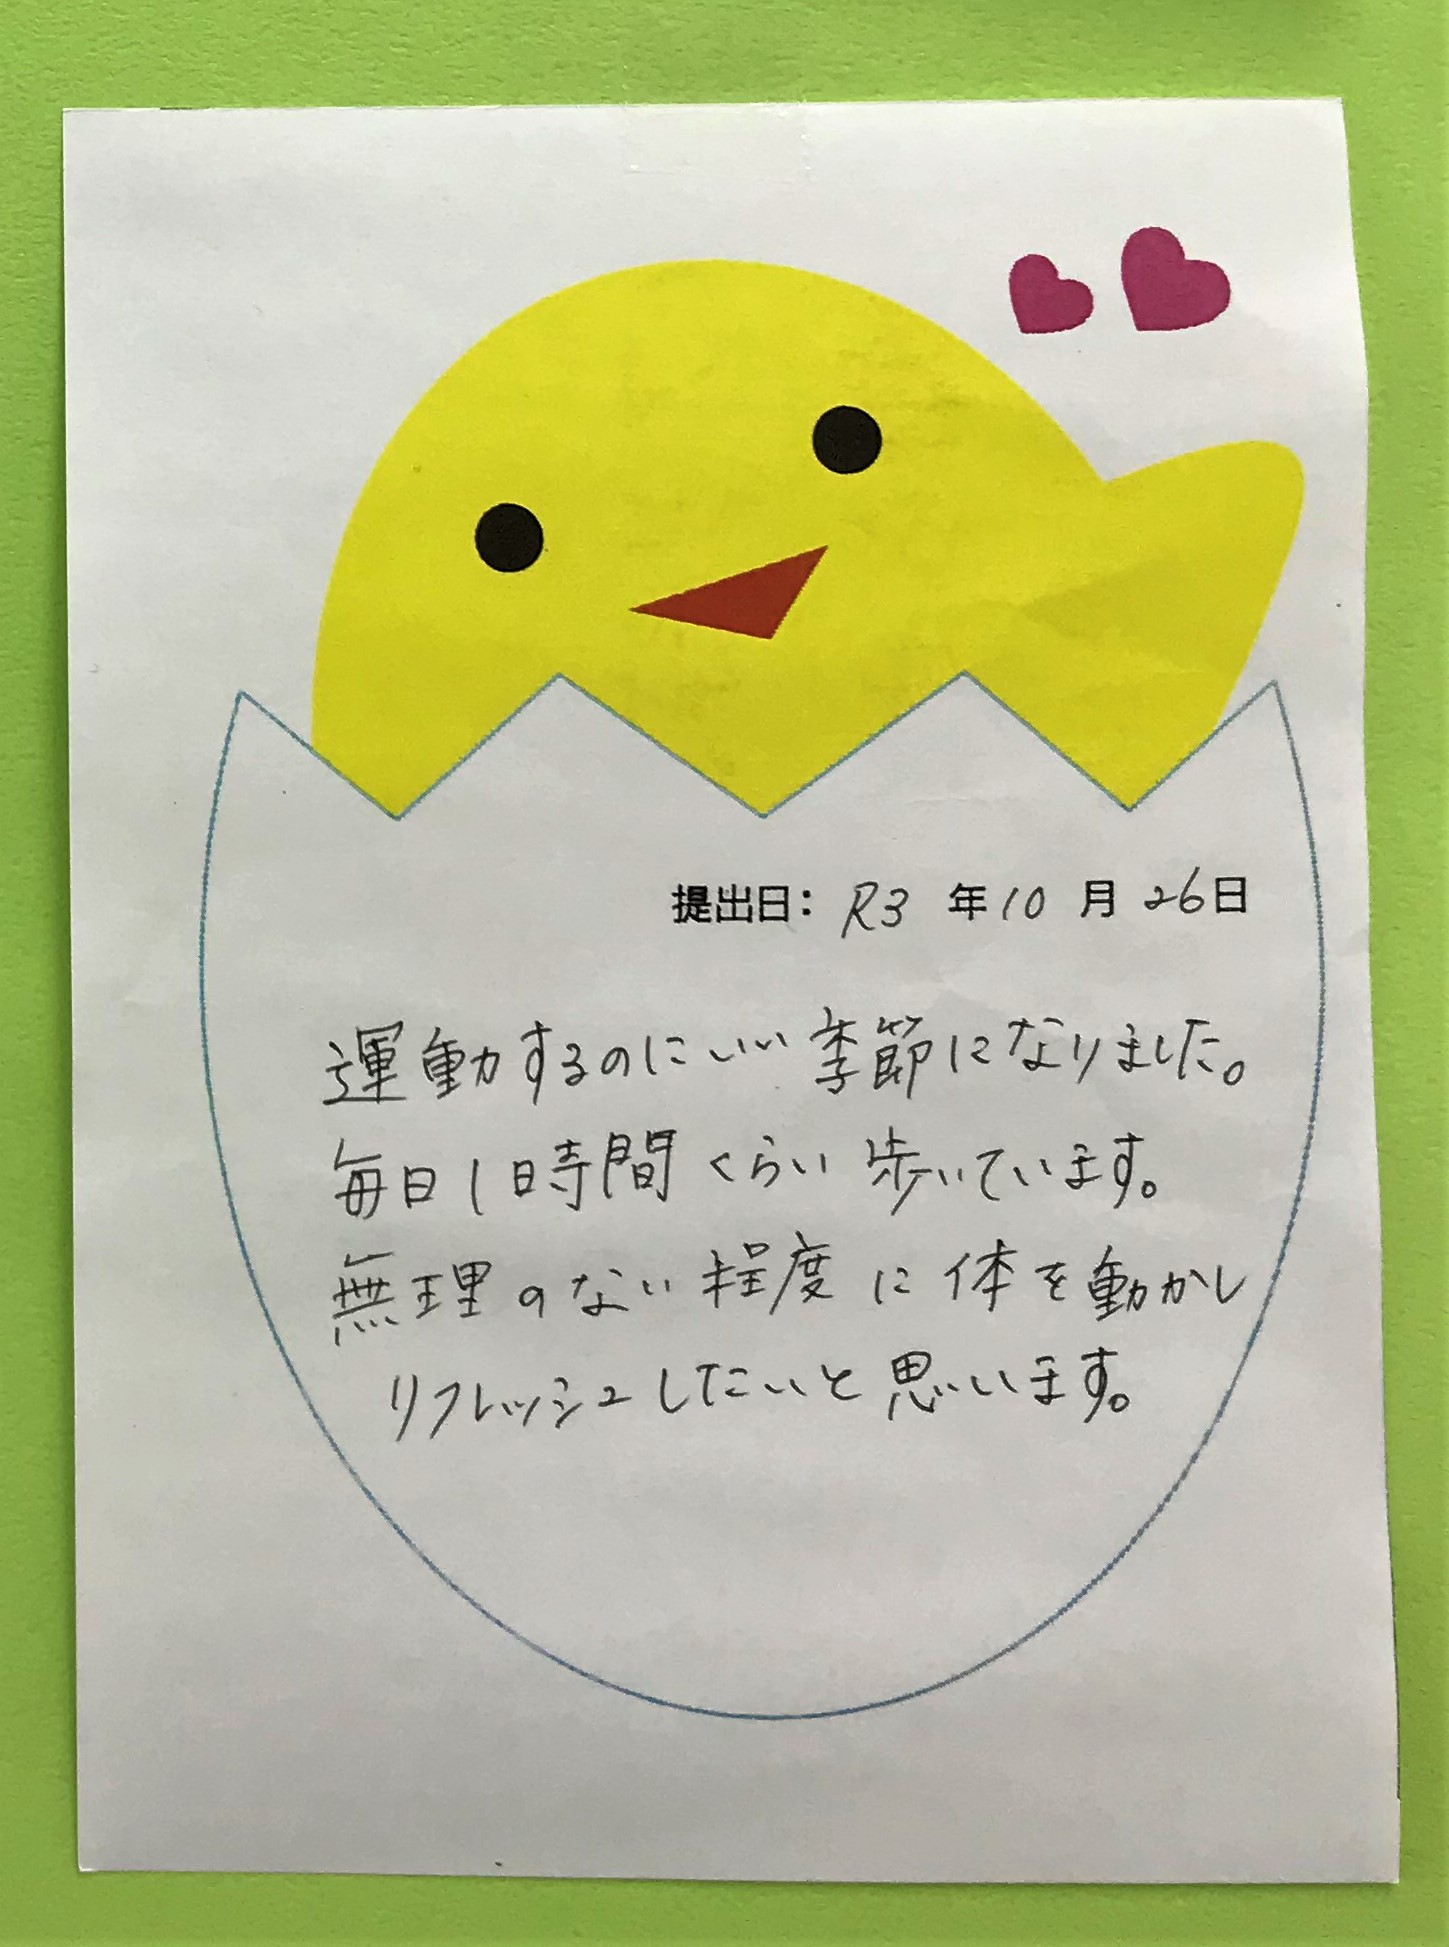 提出日: R3 年 10 月 26日
運動するのにいい季節になりました。
毎日1時間くらい歩いています。
無理のない程度に体を動かし
リフレッシュしたいと思います。